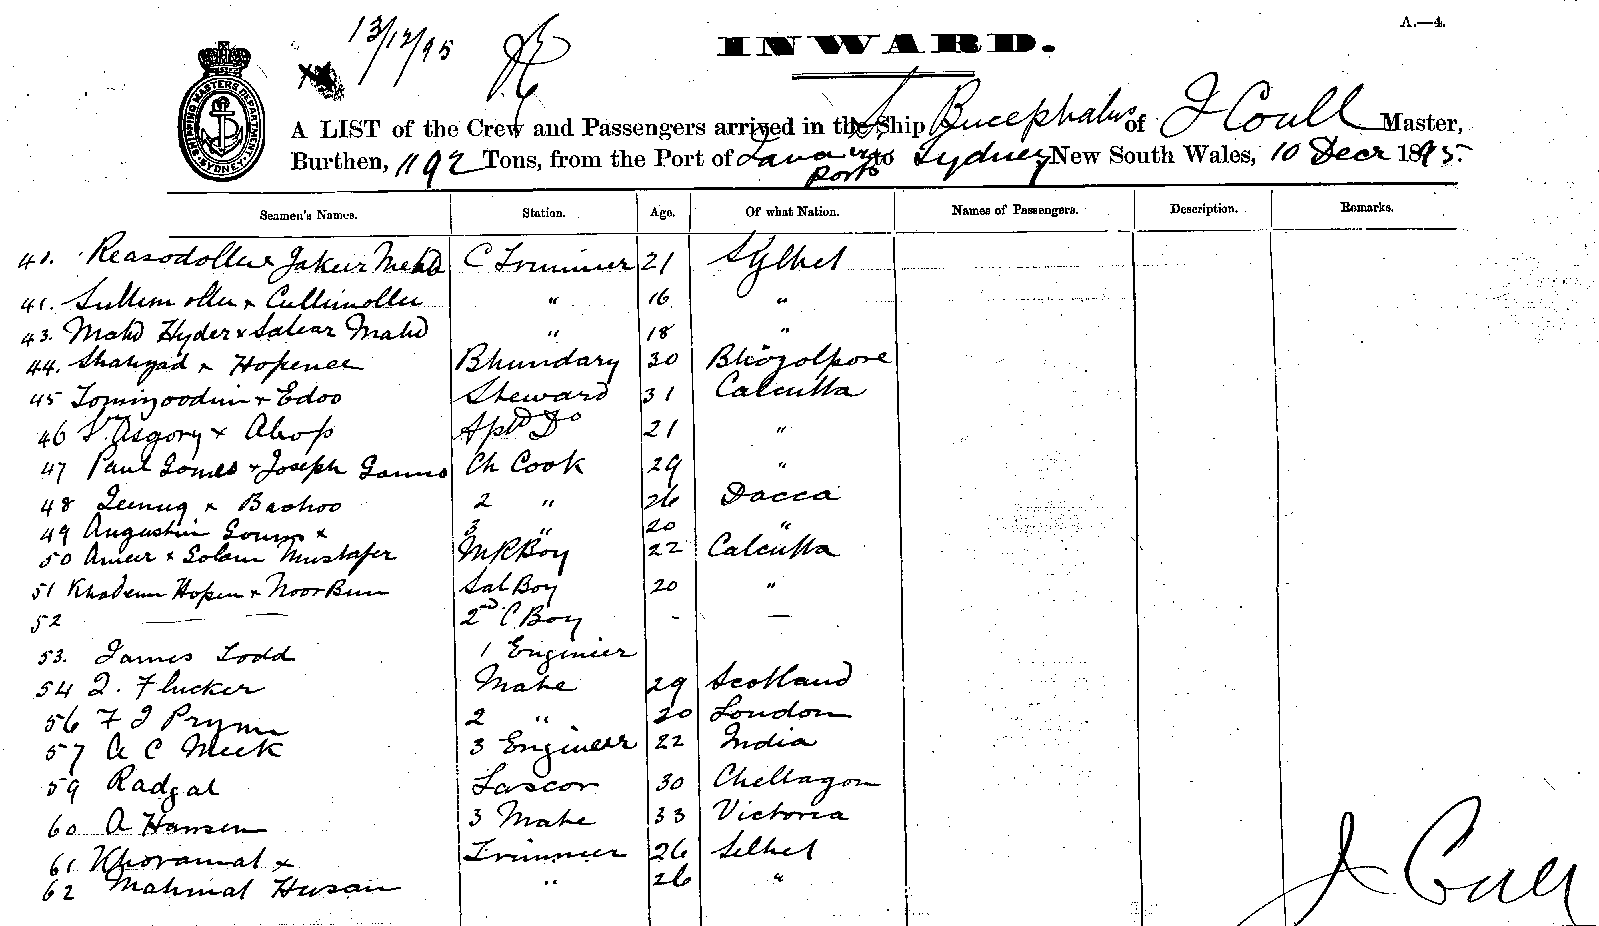 A.—4.
13/12/95
INWARD.
SHIPPING MASTERS DEPARTMENT SYDNEY
A LIST of the Crew and Passengers arrived in the Ship Bucephalus of J Coull Master,
Burthen, 1192 Tons, from the Port of Java ports to Sydney New South Wales, 10 Decr 1895.
Seamen's Names. Station. Age. Of what Nation. Names of Passengers. Description. Remarks.
41. Reasodollu Jakur Mahd C Trimmer 21 Sylhet
41. Cullimollu " 16 "
43. Mahd Hyder x Mahd " 18 "
44. x Hopenee Bhundary 30 Bhogolpore
45 x Edoo Steward 31 Calcutta
46 Asgory x Do 21 "
47 Paul Gomes x Joseph Gomes Ch Cook 29 "
48 x Bachoo 2 " 26 Dacca
49 Augustin Gomes x 3 " 20 "
50 Ameer x Golam Mustafer Boy 22 Calcutta
51 Hopen x Noor Bun Sal Boy 20 "
52 — — 2nd C Boy - —
53. James Todd 1 Engineer
54 Flucker Mate 29 Scotland
56 F J Prynn 2 " 20 London
57 A C Meek 3 Engineer 22 India
59 Radgal Lascor 30 Chettagon
60 A Hansen 3 Mate 33 Victoria
61 Khoramat x Trimmer 26 Selhet
62 Mahmat Husan " 26 "
J Coull